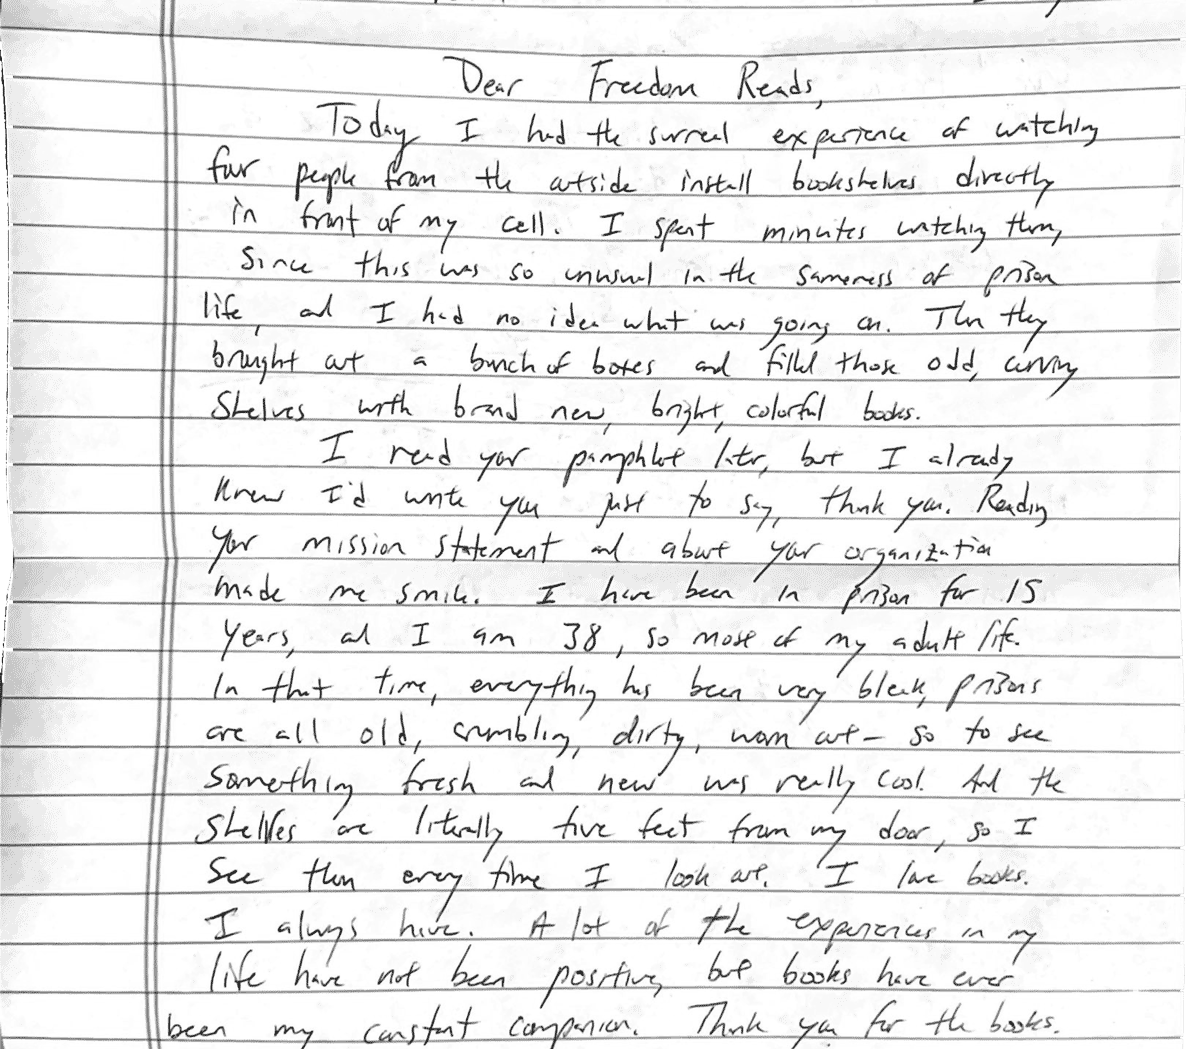 Dear Freedom Reads,
Today I had the surreal experience of watching
four people from the outside install bookshelves directly
in front of my cell. I spent minutes watching them,
since this was so unusual in the sameness of prison
life, and I had no idea what was going on. Then they
brought out a bunch of boxes and filled those odd, curving
shelves with brand new, bright, colorful books.
I read your pamphlet later, but I already
knew I'd write you just to say, thank you. Reading
your mission statement and about your organization
made me smile. I have been in prison for 15
years, and I am 38, so most of my adult life.
In that time, everything has been very bleak, prisons
are all old, crumbling, dirty, worn out - so to see
something fresh and new was really cool. And the
shelves are literally five feet from my door, so I
see them every time I look out. I love books.
I always have. A lot of the experiences in my
life have not been positive, but books have ever
been my constant companion. Thank you for the books.